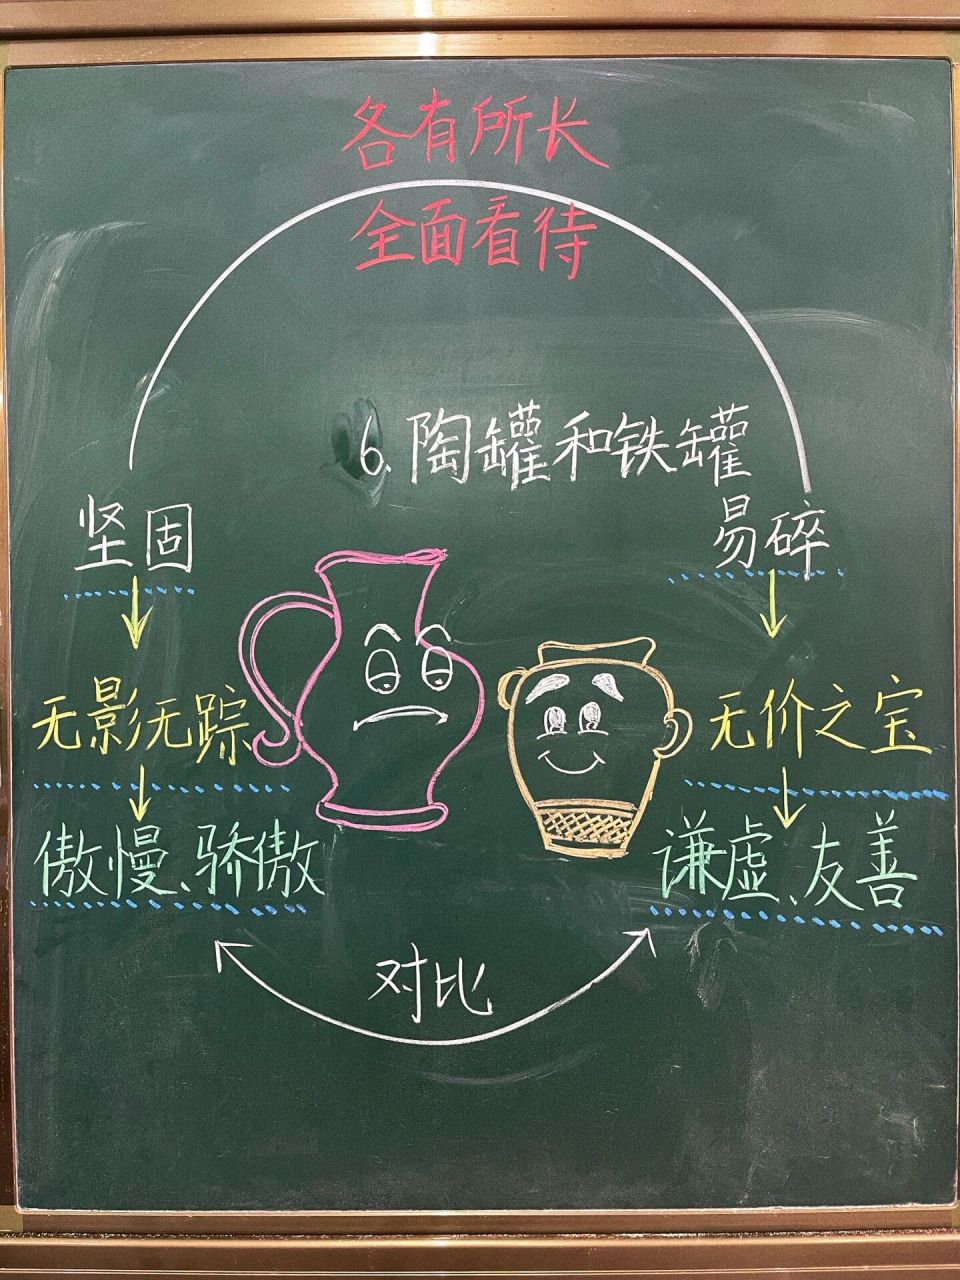 各有所长
全面看待
6.陶罐和铁罐
坚固
易碎
无影无踪
无价之宝
傲慢、骄傲
谦虚、友善
对比